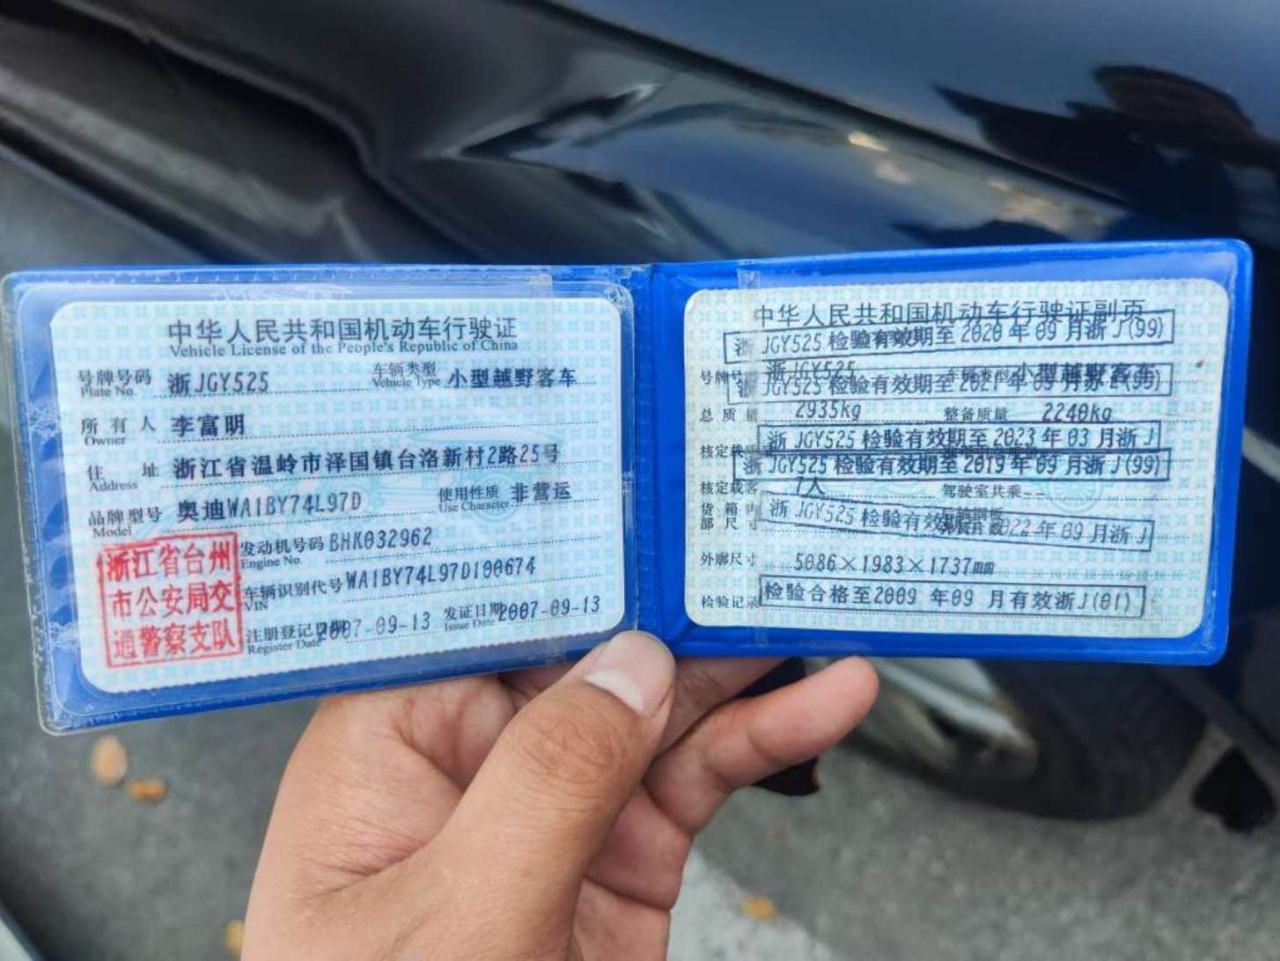 中华人民共和国机动车行驶证
Vehicle License of the People's Republic of China
号牌号码 浙JGY525 车辆类型 小型越野客车
Plate No. Vehicle Type
所有人 李富明
Owner
住址 浙江省温岭市泽国镇台洛新村2路25号
Address
品牌型号 奥迪WA1BY74L97D 使用性质 非营运
Model Use Character
浙江省台州
市公安局交
通警察支队
发动机号码 BHK032962
Engine No.
车辆识别代号 WA1BY74L97D100674
VIN
注册登记日期 2007-09-13 发证日期 2007-09-13
Register Date Issue Date
中华人民共和国机动车行驶证副页
浙JGY525 检验有效期至2020年09月浙J(99)
号牌号 浙JGY525 小型越野客车
JGY525 检验有效期至2021年09月
总质量 2935kg 整备质量 2240kg
浙JGY525 检验有效期至2023年03月浙J
核定载
浙JGY525 检验有效期至2019年09月浙J(99)
核定载客 7人 驾驶室共乘 --
货箱
部尺
浙JGY525 检验有效期至2022年09月浙J
外廓尺寸 5086×1983×1737mm
检验记录 检验合格至2009年09月有效浙J(01)